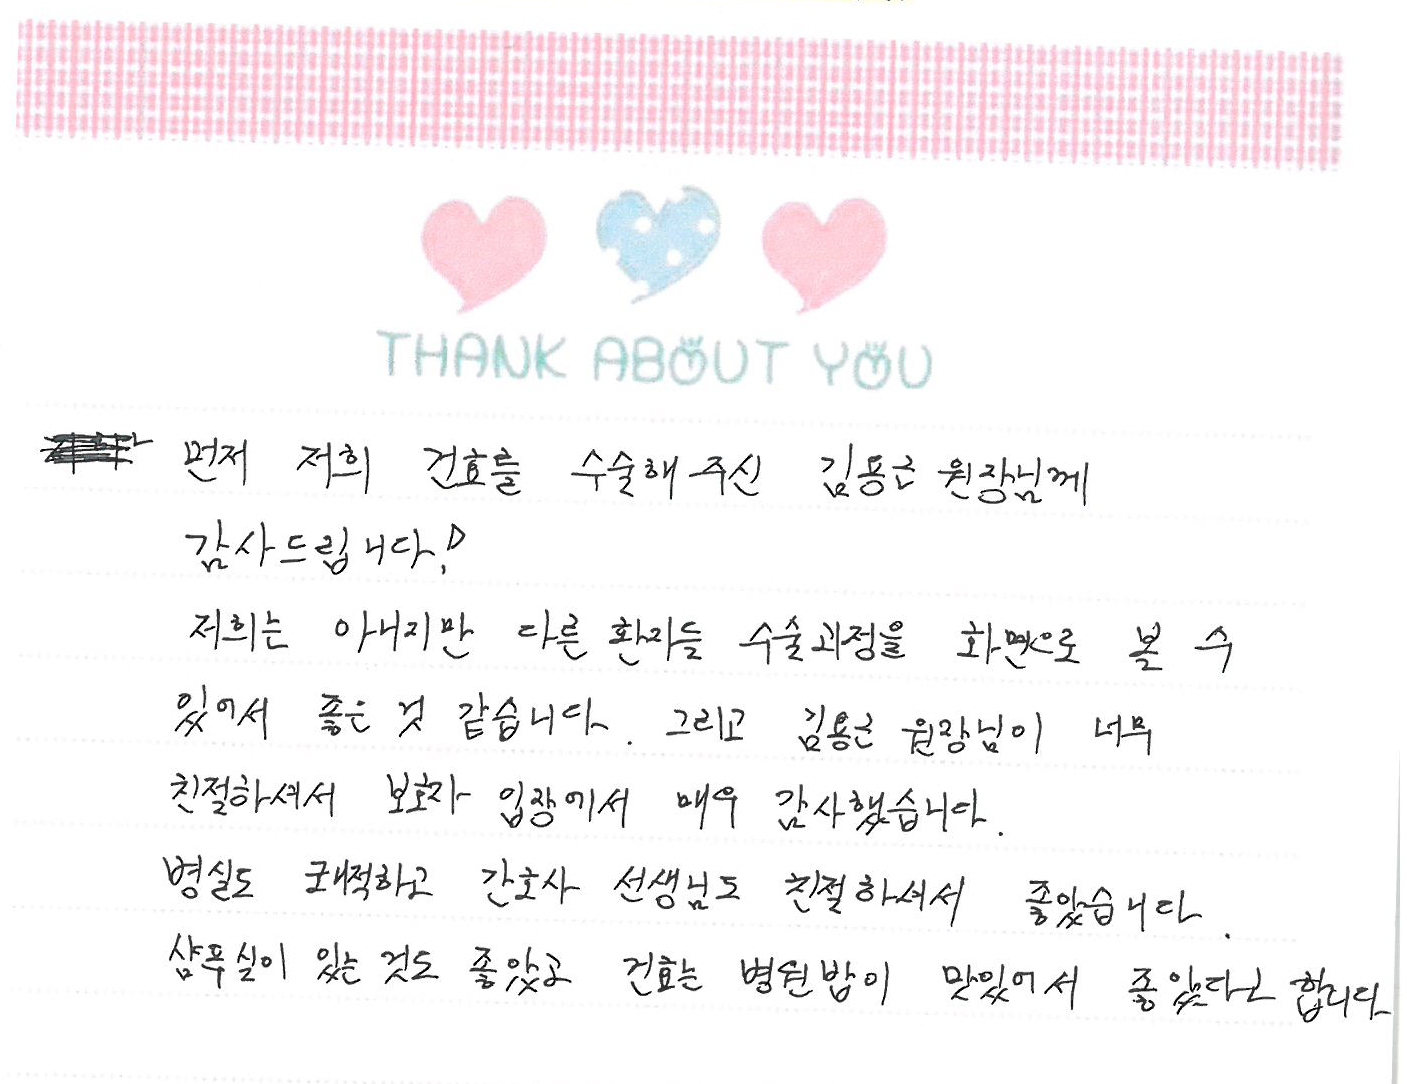 THANK ABOUT YOU
먼저 저희 건효를 수술해 주신 김용근 원장님께
감사드립니다!
저희는 아니지만 다른 환자들 수술과정을 화면으로 볼 수
있어서 좋은 것 같습니다. 그리고 김용근 원장님이 너무
친절하셔서 보호자 입장에서 매우 감사했습니다.
병실도 쾌적하고 간호사 선생님도 친절하셔서 좋았습니다.
샴푸실이 있는 것도 좋았고 건효는 병원밥이 맛있어서 좋았다고 합니다